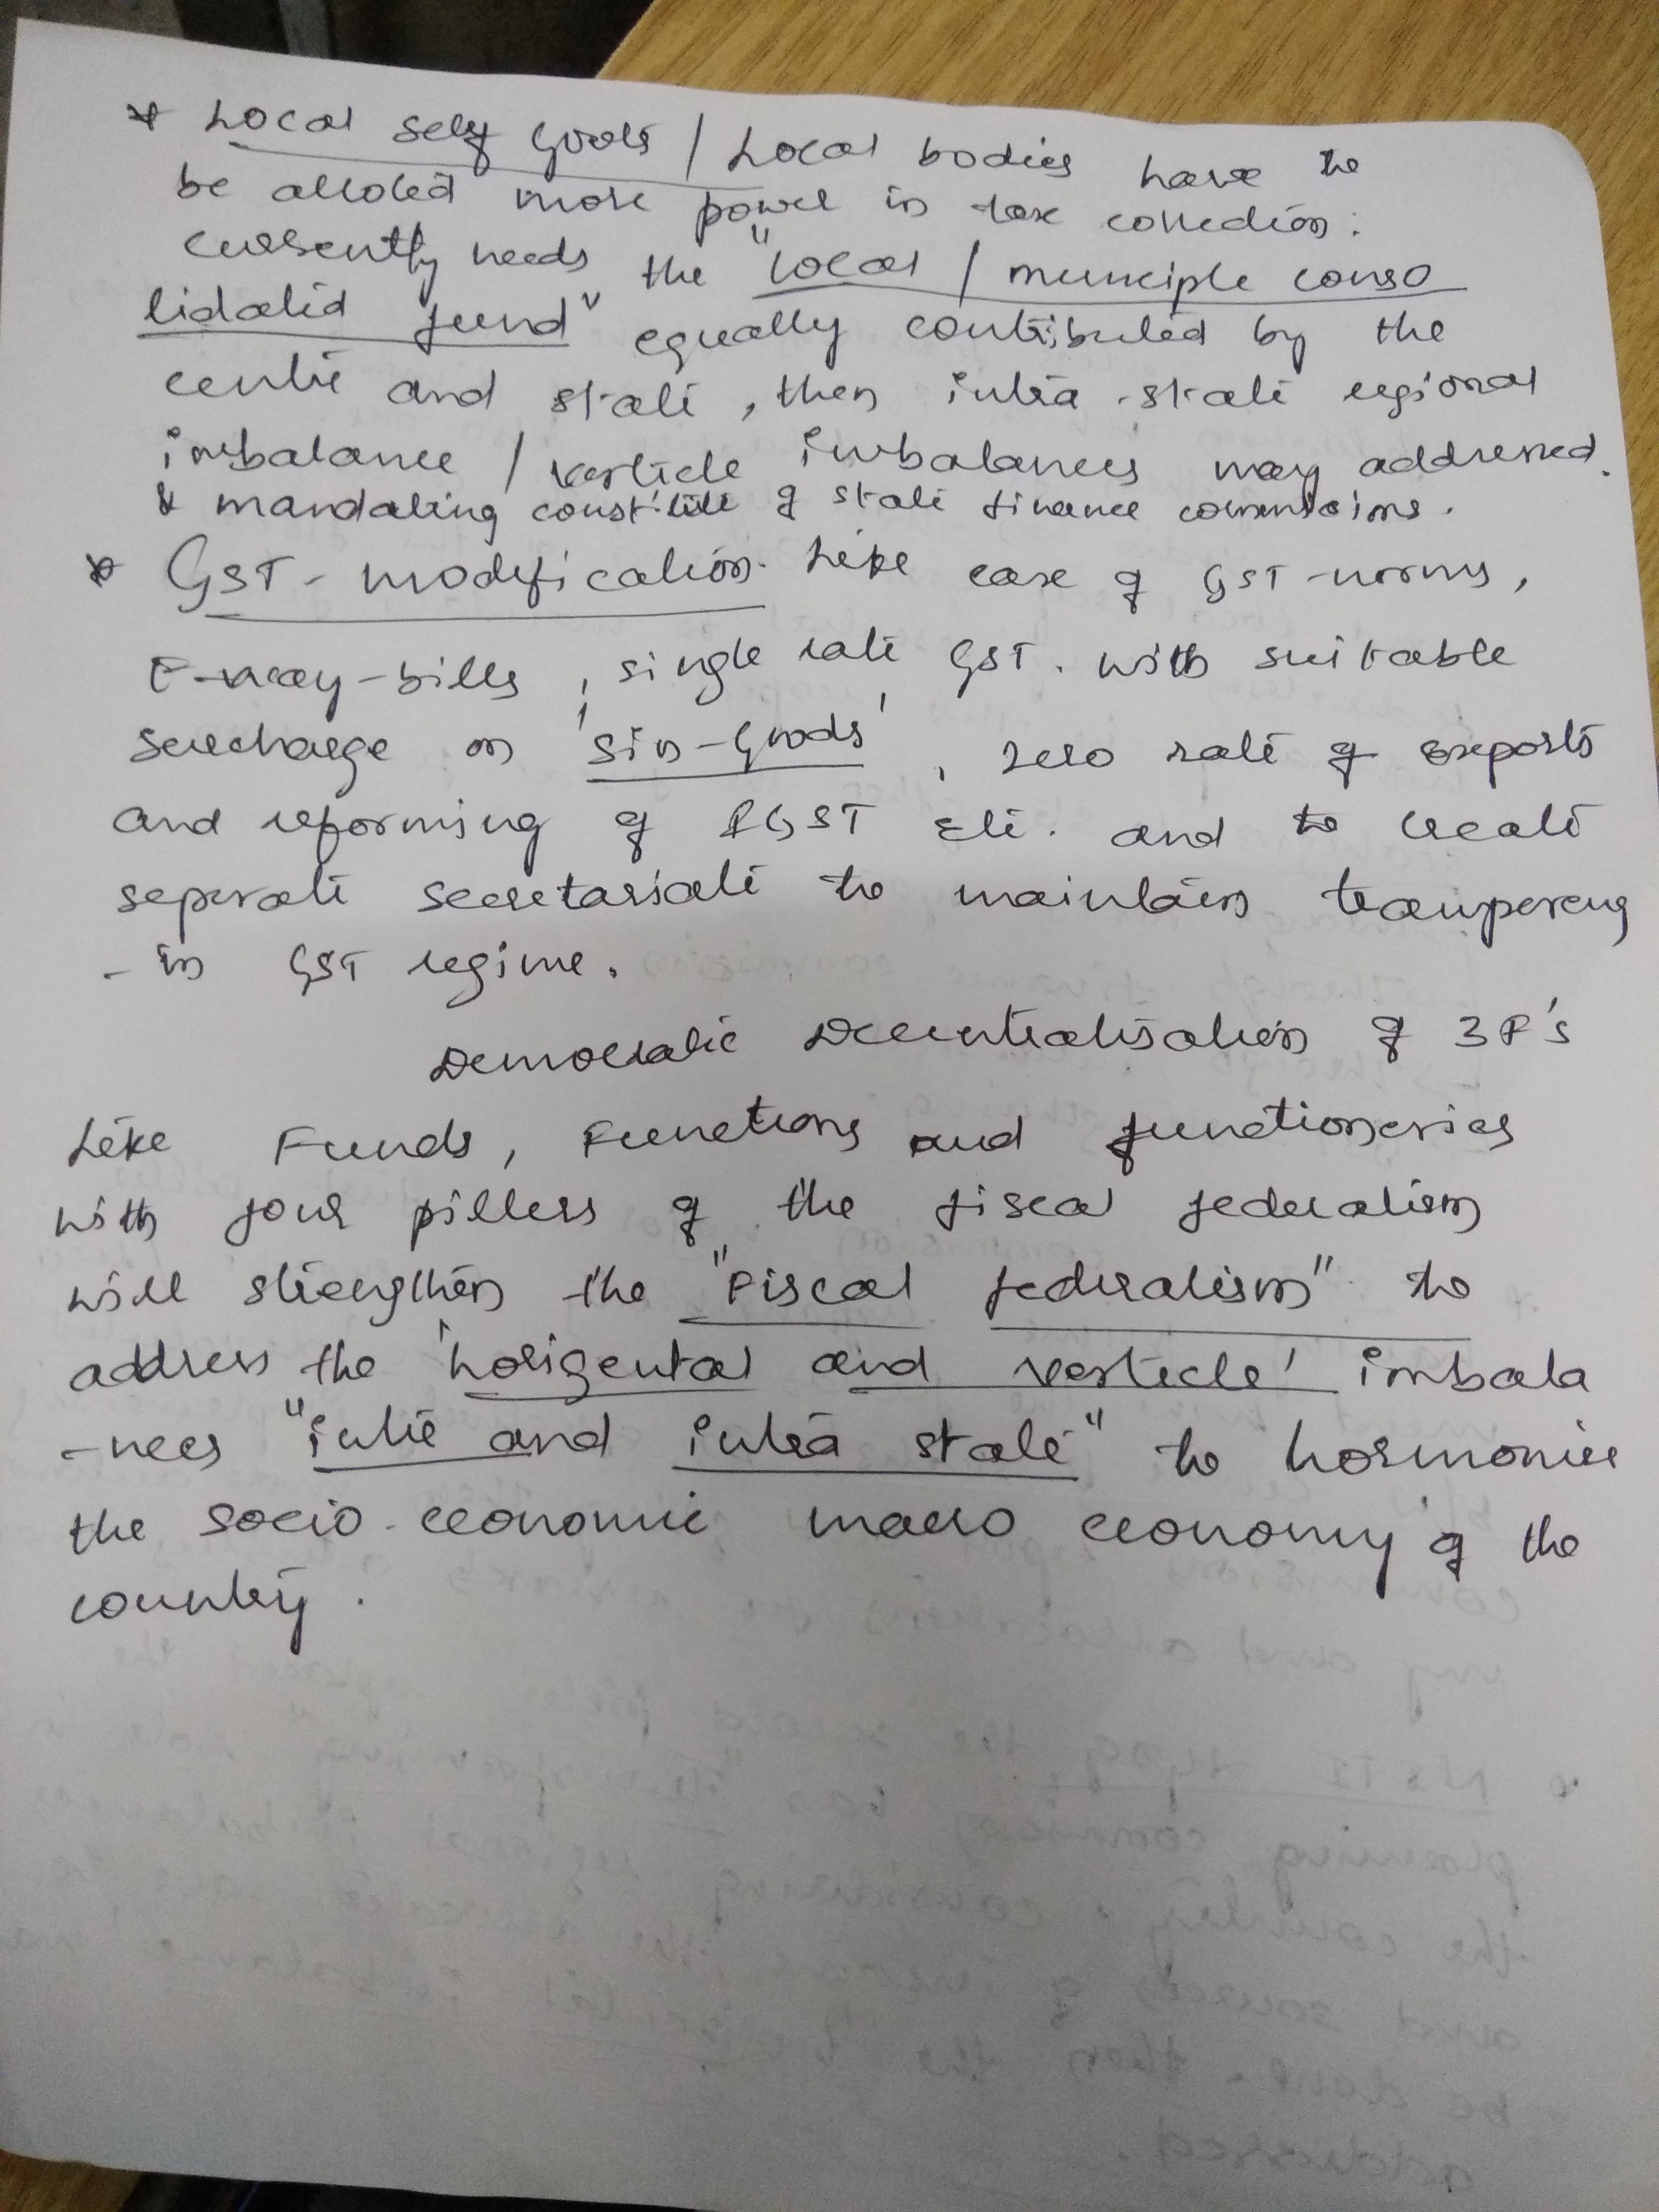 * Local self Govts / Local bodies have to
be alloted more power in tax collection.
Currently needs the "local / municiple conso
lidated fund" equally contributed by the
centre and state, then intra-state regional
imbalance / verticle imbalances may addressed.
& mandating constitute of state finance commissions.
* GST-modification. Like ease of GST-norms,
E-way-bills, single rate GST. with suitable
surcharge on 'sin-Goods', zero rate of exports
and reforming of IGST Etc. and to create
seperate secretariate to maintain
- in GST regime.
Democratic Decentralisation of 3F's
Like Funds, Functions and functioneries
with four pillers of the fiscal federalism
will strengthen the "Fiscal federalism" to
address the 'horizental and verticle' imbala
-nces "inter and intra state" to hormonise
the socio-economic macro economy of the
country.